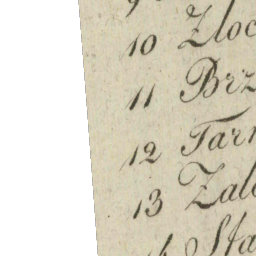 10 Zloc
11 Brz
12 Tarn
13 Zale
14 Sta